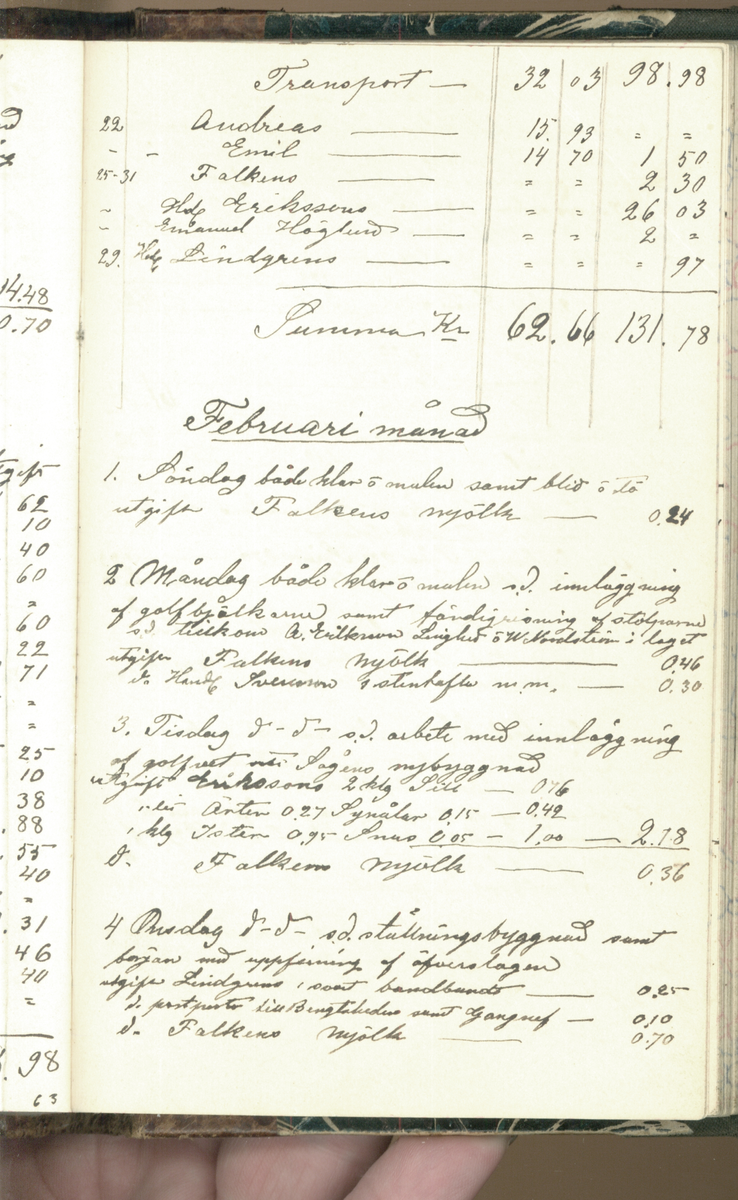 14.48
0.70
62
10
40
60
"
60
22
71
"
"
25
10
38
88
55
40
"
31
46
40
"
98
63
Transport — 32 03 98.98
22 Andreas — 15.93 " "
" " Emil — 14 70 1 50
25-31 Falkens — " " 2 30
" Hdl Erikssons — " " 26 03
" Emanuel Höglund — " " 2 "
29. Hdl Lindgrens — " " " 97
Summa Kr 62.66 131.78
Februari månad
1. Söndag både klar o mulen samt blid o tö
utgifter Falkens mjölk — 0.24
2 Måndag både klar o mulen s.d. inläggning
af golfbjälkarne samt färdigrisning af stolparne
s.d. tillkom A. Eriksson o W Nordström i laget
utgifter Falkens mjölk — 0.46
d. Handl Svensson m.m. — 0.30
3. Tisdag d-d- s.d. arbete med innläggning
af golfvet Sågens nybyggnad
utgifter Erikssons 2 klg Sill — 0.76
Ärter 0.27 Synålar 0.15 — 0.42
1 klg Ister 0.95 Snus 0.05 — 1.00 — 2.18
d. Falkens mjölk — 0.36
4 Onsdag d-d- s.d. ställningsbyggnad samt
början med uppfirning af öfverslagen
utgifter Lindgrens 1 svart bandbunt — 0.25
d. postporto till Bengtsheden samt Gangnef — 0.10
d. Falkens mjölk — 0.70